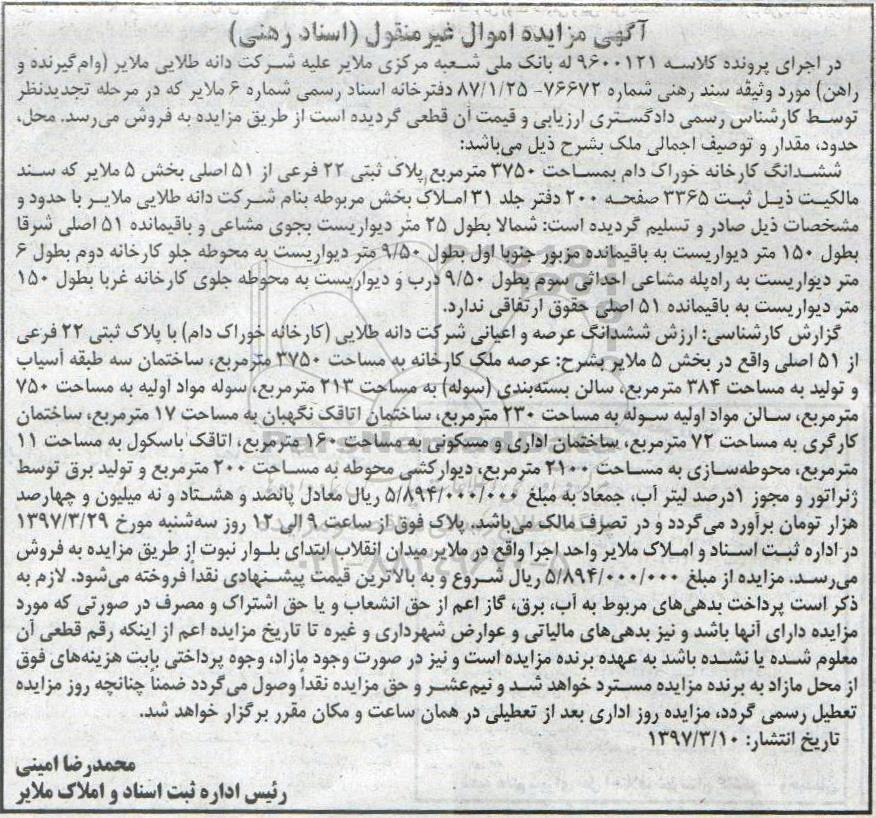 آگهی مزایده اموال غیرمنقول (اسناد رهنی)
در اجرای پرونده کلاسه ۹۶۰۰۱۲۱ له بانک ملی شعبه مرکزی ملایر علیه شرکت دانه طلایی ملایر (وام‌گیرنده و
راهن) مورد وثیقه سند رهنی شماره ۷۶۶۷۲- ۸۷/۱/۲۵ دفترخانه اسناد رسمی شماره ۶ ملایر که در مرحله تجدیدنظر
توسط کارشناس رسمی دادگستری ارزیابی و قیمت آن قطعی گردیده است از طریق مزایده به فروش می‌رسد. محل،
حدود، مقدار و توصیف اجمالی ملک بشرح ذیل می‌باشد:
ششدانگ کارخانه خوراک دام بمساحت ۳۷۵۰ مترمربع پلاک ثبتی ۲۲ فرعی از ۵۱ اصلی بخش ۵ ملایر که سند
مالکیت ذیل ثبت ۳۳۶۵ صفحه ۲۰۰ دفتر جلد ۳۱ املاک بخش مربوطه بنام شرکت دانه طلایی ملایر با حدود و
مشخصات ذیل صادر و تسلیم گردیده است: شمالا بطول ۲۵ متر دیواریست بجوی مشاعی و باقیمانده ۵۱ اصلی شرقا
بطول ۱۵۰ متر دیواریست به باقیمانده مزبور جنوبا اول بطول ۹/۵۰ متر دیواریست به محوطه جلو کارخانه دوم بطول ۶
متر دیواریست به راه‌پله مشاعی احداثی سوم بطول ۹/۵۰ درب و دیواریست به محوطه جلوی کارخانه غربا بطول ۱۵۰
متر دیواریست به باقیمانده ۵۱ اصلی حقوق ارتفاقی ندارد.
گزارش کارشناسی: ارزش ششدانگ عرصه و اعیانی شرکت دانه طلایی (کارخانه خوراک دام) با پلاک ثبتی ۲۲ فرعی
از ۵۱ اصلی واقع در بخش ۵ ملایر بشرح: عرصه ملک کارخانه به مساحت ۳۷۵۰ مترمربع، ساختمان سه طبقه آسیاب
و تولید به مساحت ۳۸۴ مترمربع، سالن بسته‌بندی (سوله) به مساحت ۲۱۳ مترمربع، سوله مواد اولیه به مساحت ۷۵۰
مترمربع، سالن مواد اولیه سوله به مساحت ۲۳۰ مترمربع، ساختمان اتاقک نگهبان به مساحت ۱۷ مترمربع، ساختمان
کارگری به مساحت ۷۲ مترمربع، ساختمان اداری و مسکونی به مساحت ۱۶۰ مترمربع، اتاقک باسکول به مساحت ۱۱
مترمربع، محوطه‌سازی به مساحت ۲۱۰۰ مترمربع، دیوارکشی محوطه به مساحت ۲۰۰ مترمربع و تولید برق توسط
ژنراتور و مجوز ۱درصد لیتر آب، جمعاد به مبلغ ۵/۸۹۴/۰۰۰/۰۰۰ ریال معادل پانصد و هشتاد و نه میلیون و چهارصد
هزار تومان برآورد می‌گردد و در تصرف مالک می‌باشد. پلاک فوق از ساعت ۹ الی ۱۲ روز سه‌شنبه مورخ ۱۳۹۷/۳/۲۹
در اداره ثبت اسناد و املاک ملایر واحد اجرا واقع در ملایر میدان انقلاب ابتدای بلوار نبوت از طریق مزایده به فروش
می‌رسد. مزایده از مبلغ ۵/۸۹۴/۰۰۰/۰۰۰ ریال شروع و به بالاترین قیمت پیشنهادی نقداً فروخته می‌شود. لازم به
ذکر است پرداخت بدهی‌های مربوط به آب، برق، گاز اعم از حق انشعاب و یا حق اشتراک و مصرف در صورتی که مورد
مزایده دارای آنها باشد و نیز بدهی‌های مالیاتی و عوارض شهرداری و غیره تا تاریخ مزایده اعم از اینکه رقم قطعی آن
معلوم شده یا نشده باشد به عهده برنده مزایده است و نیز در صورت وجود مازاد، وجوه پرداختی بابت هزینه‌های فوق
از محل مازاد به برنده مزایده مسترد خواهد شد و نیم‌عشر و حق مزایده نقداً وصول می‌گردد ضمنا چنانچه روز مزایده
تعطیل رسمی گردد، مزایده روز اداری بعد از تعطیلی در همان ساعت و مکان مقرر برگزار خواهد شد.
تاریخ انتشار: ۱۳۹۷/۳/۱۰
محمدرضا امینی
رئیس اداره ثبت اسناد و املاک ملایر